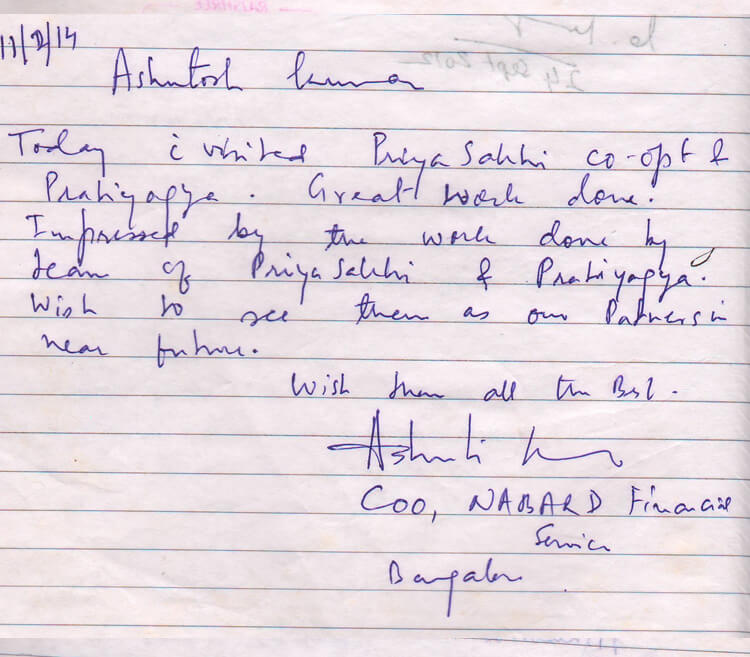 11/2/14
Ashutosh Kumar
Today i visited Priya Sakhi co-opt &
Pratiyagya. Great work done.
Impressed by the work done by
team of Priya Sakhi & Pratiyagya.
Wish to see them as our Patners in
near future.
Wish them all the Best.
COO, NABARD Financial
Service
Bangalore
24 Sept 2012